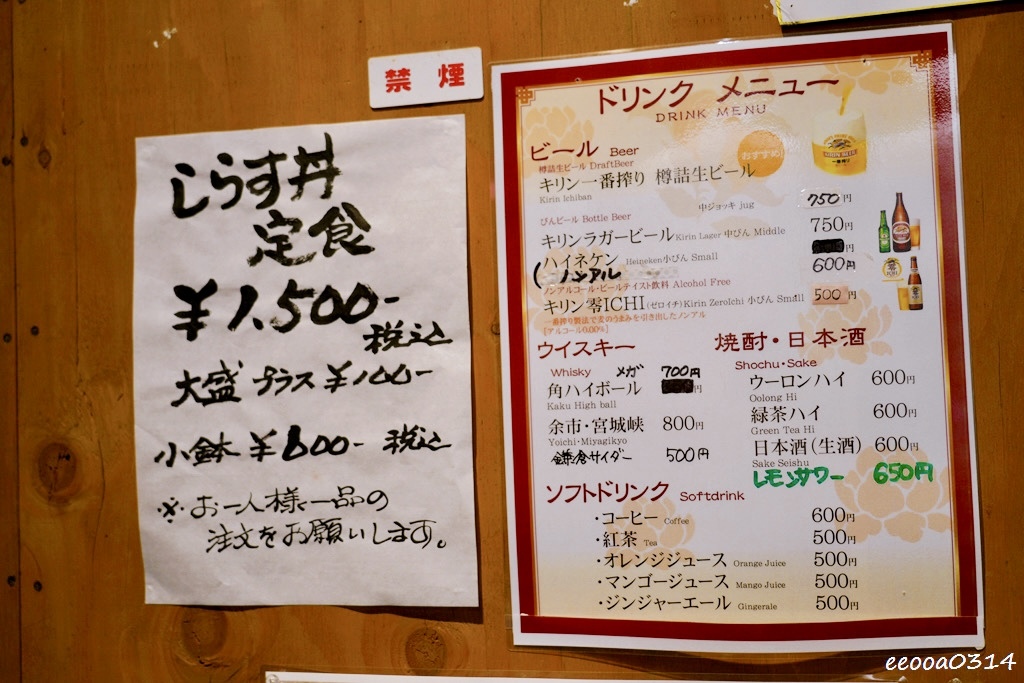 禁煙
しらす丼
定食
¥1,500-
税込
大盛 プラス ¥100-
小鉢 ¥600- 税込
※お一人様一品の
注文をお願いします。
ドリンク メニュー
DRINK MENU
ビール Beer
おすすめ!
樽詰生ビール DraftBeer
キリン一番搾り 樽詰生ビール
Kirin Ichiban
中ジョッキ jug 750円
びんビール Bottle Beer
キリンラガービール Kirin Lager 中びん Middle 750円
ハイネケン Heineken 小びん Small 円
(ノンアル 600円
ノンアルコール・ビールテイスト飲料 Alcohol Free
キリン零ICHI (ゼロイチ) Kirin ZeroIchi 小びん Small 500円
一番搾り製法で麦のうまみを引き出したノンアル
[アルコール0.00%]
ウイスキー
Whisky メガ 700円
角ハイボール 円
Kaku High ball
余市・宮城峡 800円
Yoichi・Miyagikyo
鎌倉サイダー 500円
焼酎・日本酒
Shochu・Sake
ウーロンハイ 600円
Oolong Hi
緑茶ハイ 600円
Green Tea Hi
日本酒(生酒) 600円
Sake Seishu
レモンサワー 650円
ソフトドリンク Softdrink
・コーヒー Coffee 600円
・紅茶 Tea 500円
・オレンジジュース Orange Juice 500円
・マンゴージュース Mango Juice 500円
・ジンジャーエール Gingerale 500円
eeooa0314